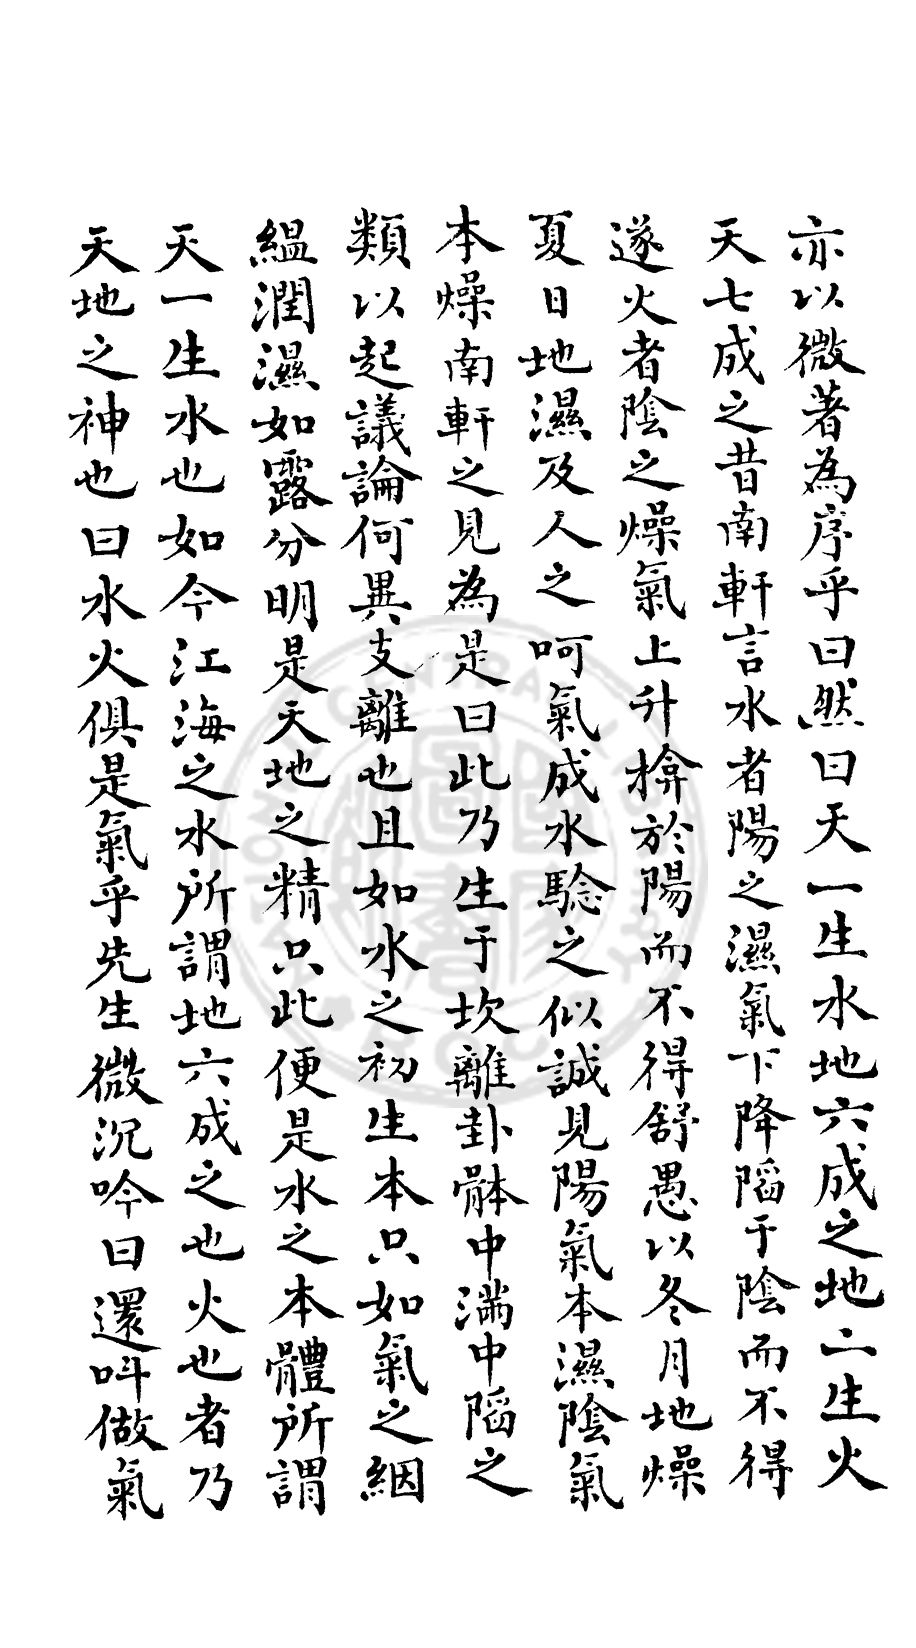 亦以微著為序乎曰然曰天一生水地六成之地二生火
天七成之昔南軒言水者陽之濕氣下降陷于陰而不得
遂火者陰之燥氣上升揜於陽而不得舒愚以冬月地燥
夏日地濕及人之呵氣成水驗之似誠見陽氣本濕陰氣
本燥南軒之見為是曰此乃生于坎離卦體中滿中陷之
類以起議論何異支離也且如水之初生本只如氣之絪
縕潤濕如露分明是天地之精只此便是水之本體所謂
天一生水也如今江海之水所謂地六成之也火也者乃
天地之神也曰水火俱是氣乎先生微沉吟曰還叫做氣